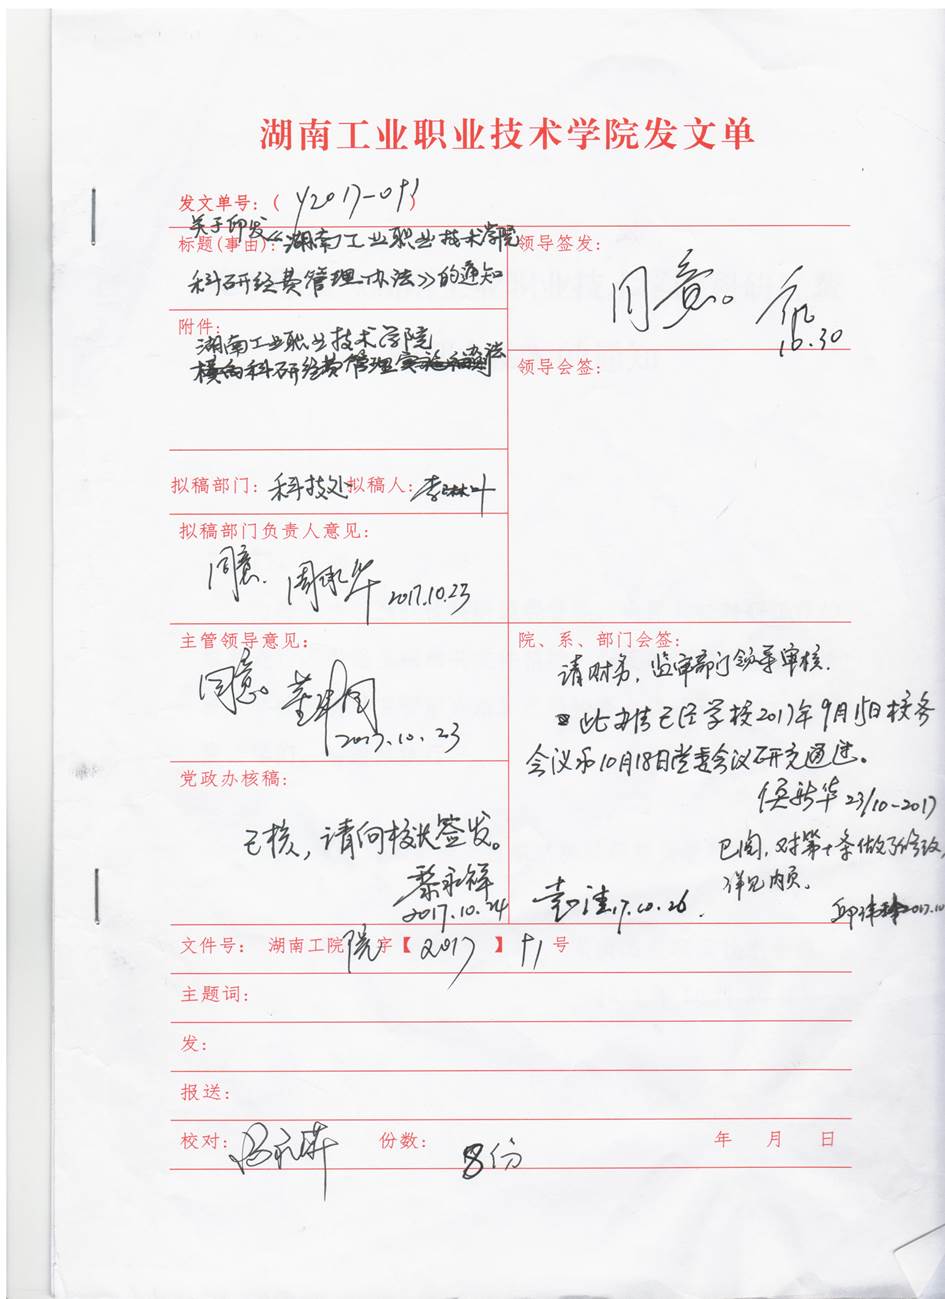 湖南工业职业技术学院发文单
发文单号：( y2017-091)
关于印发
标题(事由)：《湖南工业职业技术学院
科研经费管理办法》的通知
领导签发：
同意。
10.30
附件：
湖南工业职业技术学院
横向科研经费管理实施
领导会签：
拟稿部门：科技处 拟稿人：李
拟稿部门负责人意见：
同意. 周承华 2017.10.23
主管领导意见：
同意。
2017.10.23
院、系、部门会签：
请财务，监审部门领导审核.
此办法已经学校2017年9月15日校务
会议和10月18日党委会议研究通过。
侯新华 23/10-2017
已阅，对第十条做了修改，
详见内页。
17.10.26.
党政办核稿：
已核，请何校长签发。
黎永祥
2017.10.24
文件号： 湖南工院院字【2017】91号
主题词：
发：
报送：
校对： 份数：8份 年 月 日